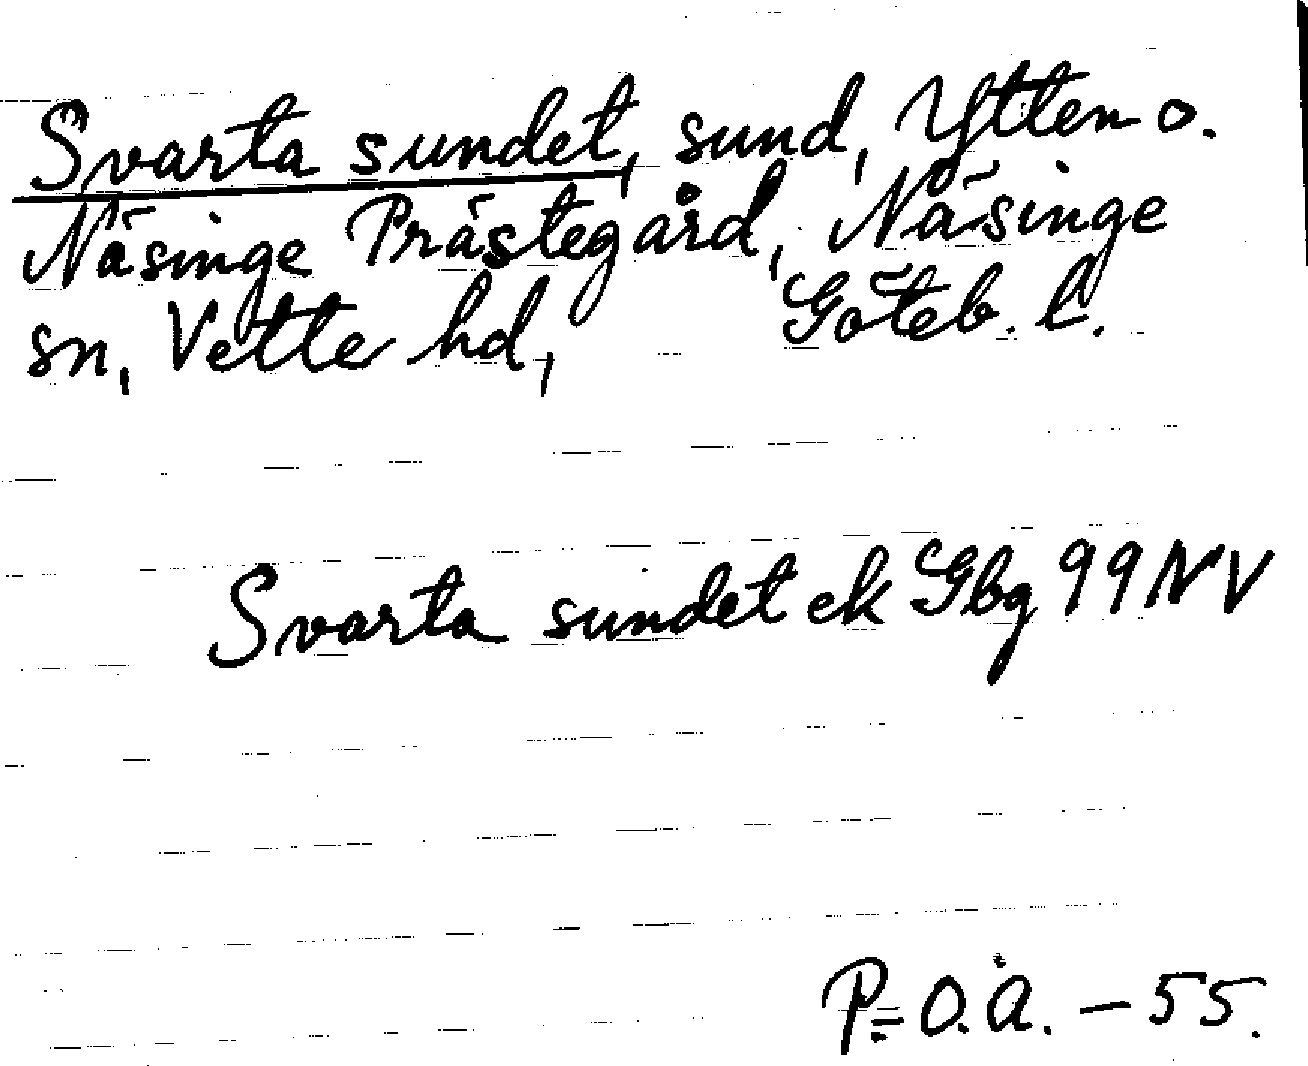 Svarta sundet, sund, Ytten o.
Näsinge Prästegård, Näsinge
sn, Vette hd, Göteb. l.
Svarta sundet ek Gbg 99 NV
P=O.Å. – 55.